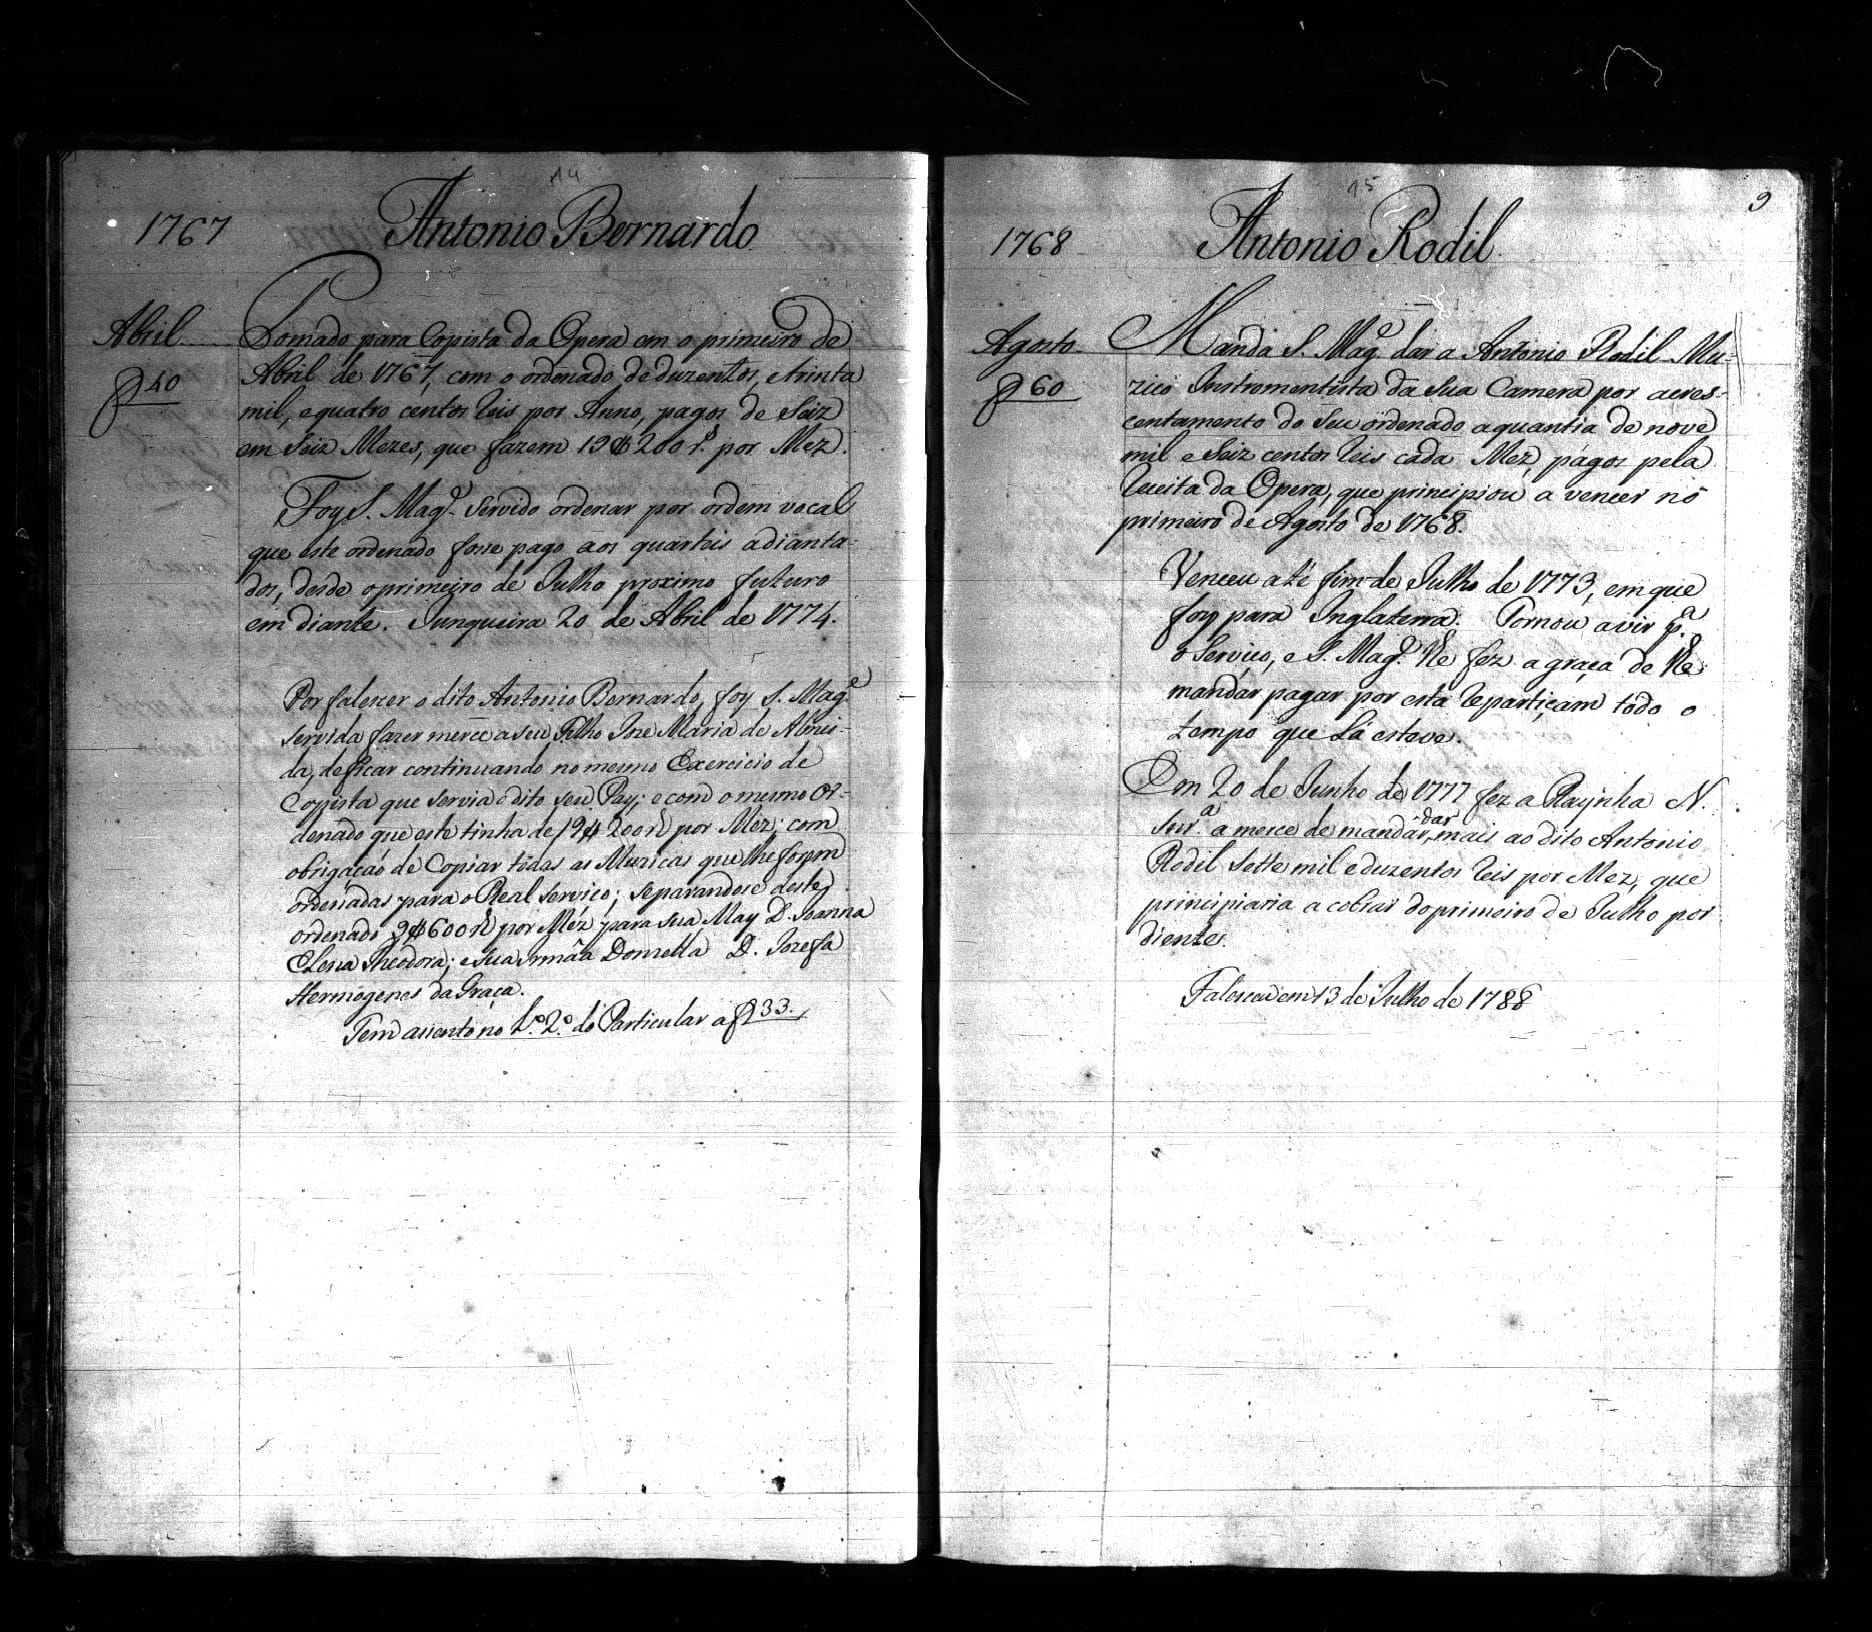 14
1767 Antonio Bernardo
Abril. Tomado para Copista da Opera em o primeiro de
f 40 Abril de 1767, com o ordenado de duzentos, e trinta
mil, e quatro centos reis por Anno, pagos de Seiz
em Seiz Mezes, que fazem 19$200 rs. por Mez.
Foy S. Mage. Servido ordenar por ordem vocal
que este ordenado fosse pago aos quarteis adianta-
dos, desde o primeiro de Julho proximo futuro
em diante. Junqueira 20 de Abril de 1774.
Por falescer o dito Antonio Bernardo, foy S. Mage.
servida fazer merce a seu Filho Joze Maria de Almei-
da, de ficar continuando no mesmo Exercicio de
Copista que servia o dito seu Pay; e com o mesmo Or-
denado que este tinha de 19$200 rs por Mez; com
obrigação de Copiar todas as Muzicas que lhe forem
ordenadas para o Real serviço; separandose deste
ordenado 9$600 rs por Mez para sua May D. Joanna
Elena Theodora; e sua Irmãa Donzella D. Jozefa
Hermogenes da Graça.
Tem assento no L.º 2.º do Particular a f 33.
15
9
1768 Antonio Rodil.
Agosto Manda S. Mage. dar a Antonio Rodil Mu-
f 60 zico Instromentista da Sua Camera por acres-
centamento do seu ordenado a quantia de nove
mil e Seiz centos reis cada Mez, pagos pela
Receita da Opera, que principiou a vencer no
primeiro de Agosto de 1768.
Venceu até fim de Julho de 1773, em que
foy para Inglaterra. Tornou a vir p.a
o Serviço, e S. Mage. lhe fez a graça de lhe
mandar pagar por esta repartiçam todo o
tempo que Lá esteve.
Em 20 de Junho de 1777 fez a Raynha N.
Snr.a a merce de mandar dar mais ao dito Antonio
Rodil Sette mil e duzentos reis por Mez, que
principiaria a cobrar do primeiro de Julho por
diente.
Falesceu em 13 de Julho de 1788